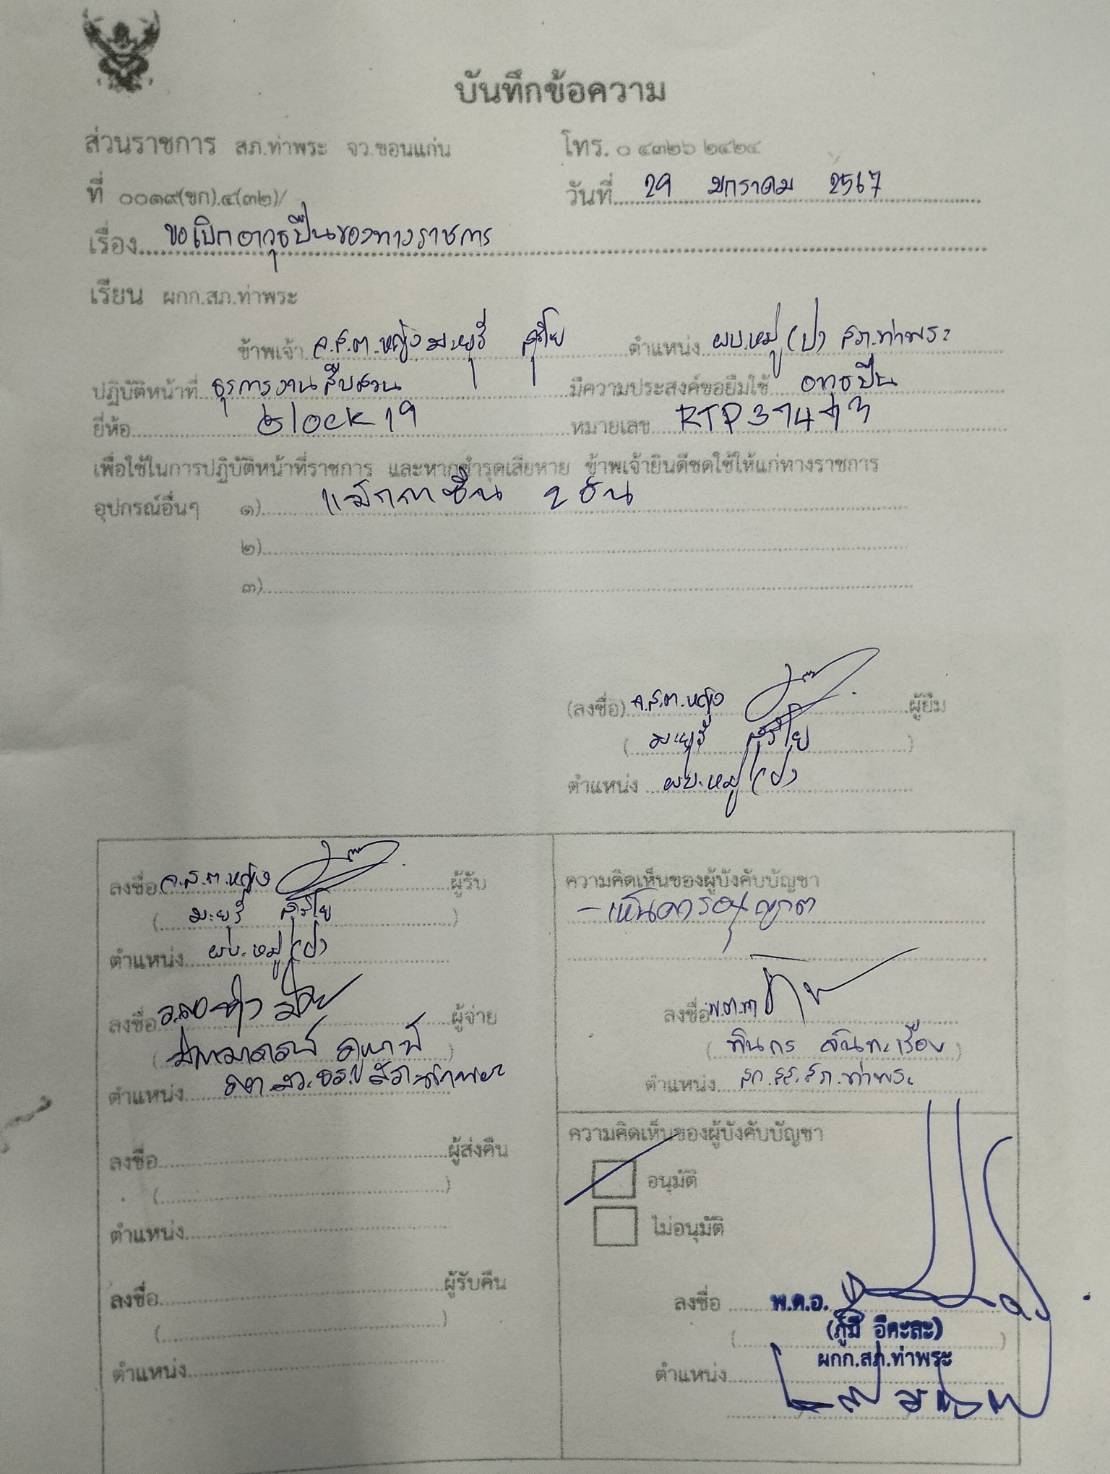 บันทึกข้อความ
ส่วนราชการ สภ.ท่าพระ จว.ขอนแก่น โทร. ๐ ๔๓๒๖ ๒๔๒๔
ที่ ๐๐๑๙(ขก).๔(๓๒)/ วันที่ 29 มกราคม 2567
เรื่อง ขอเบิกอาวุธปืนของทางราชการ
เรียน ผกก.สภ.ท่าพระ
ข้าพเจ้า ส.ต.หญิง มะยุรี ตำแหน่ง ผบ.หมู่ (ป) สภ.ท่าพระ
ปฏิบัติหน้าที่ ธุรการงานสืบสวน มีความประสงค์ขอยืมใช้ อาวุธปืน
ยี่ห้อ Glock 19 หมายเลข RTP
เพื่อใช้ในการปฏิบัติหน้าที่ราชการ และหากชำรุดเสียหาย ข้าพเจ้ายินดีชดใช้ให้แก่ทางราชการ
อุปกรณ์อื่นๆ ๑) แม็กกาซีน 2 อัน
๒)
๓)
(ลงชื่อ) ส.ต.หญิง ผู้ยืม
( มะยุรี )
ตำแหน่ง ผบ.หมู่ (ป)
ลงชื่อ ส.ต.หญิง ผู้รับ
( มะยุรี )
ตำแหน่ง ผบ.หมู่ (ป)
ลงชื่อ ผู้จ่าย
( )
ตำแหน่ง
ลงชื่อ ผู้ส่งคืน
( )
ตำแหน่ง
ลงชื่อ ผู้รับคืน
( )
ตำแหน่ง
ความคิดเห็นของผู้บังคับบัญชา
- เห็นควรอนุญาต
ลงชื่อ พ.ต.ท.
( ทินกร จันทะเรือง )
ตำแหน่ง สภ.ท่าพระ
ความคิดเห็นของผู้บังคับบัญชา
อนุมัติ
ไม่อนุมัติ
ลงชื่อ พ.ต.อ.
(ภูมี อีคะละ)
ตำแหน่ง ผกก.สภ.ท่าพระ